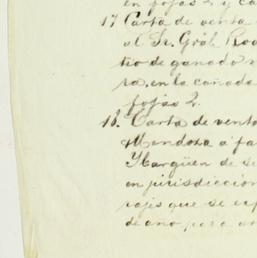 en fojas 2 y ca
17 Carta de venta
al Sr. Gral. Roa
tio de ganado m
ra, en la cañada
fojas 2.
18. Carta de venta
Mendoza á fa
Ibargüen de se
en jurisdiccion
rajes que se esp
de año, para